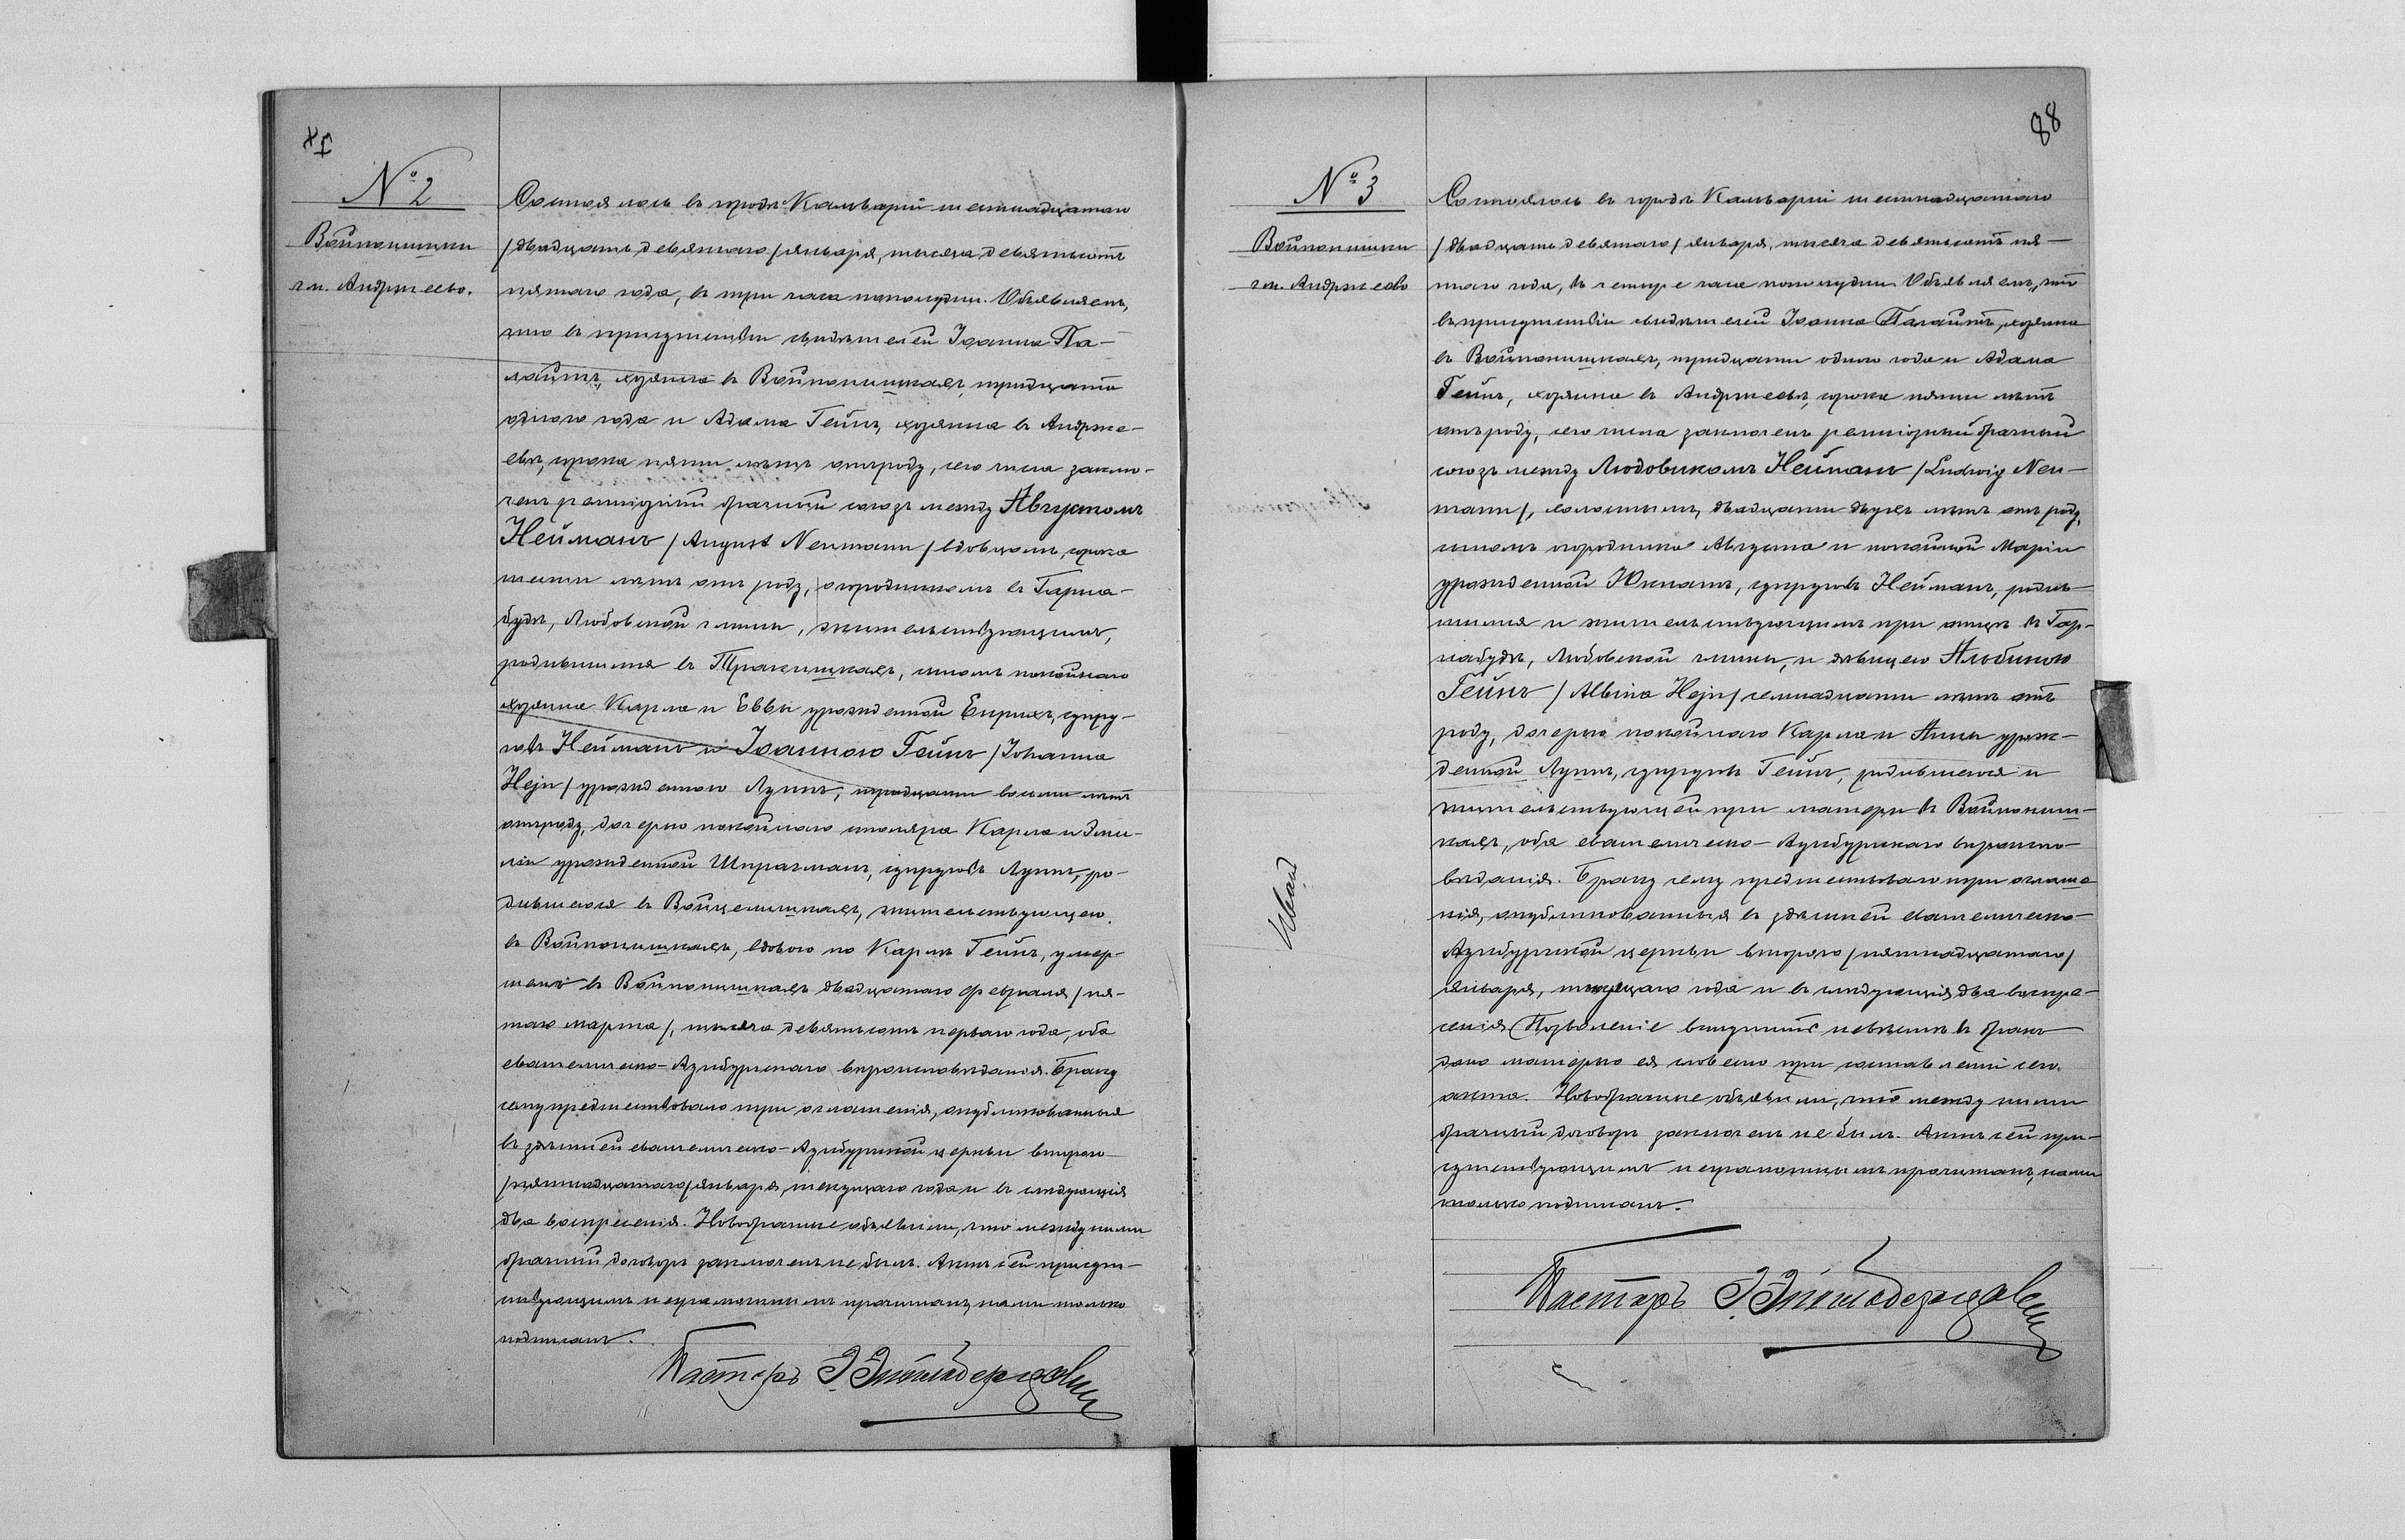 № 2
Войпонишки
гм. Андржеево.
Состоялось въ городѣ Кальваріи шестнадцатаго
/двадцать девятаго/ января, тысяча девятьсотъ
пятаго года, въ три часа пополудни. Объявляемъ,
что въ присутствіи свидѣтелей Іоанна Па-
лайтъ, хозяина въ Войпонишкахъ, тридцати
одного года и Адама Гейнъ, хозяина въ Андрже-
евѣ, сорока пяти лѣтъ отъ роду, сего числа заклю-
ченъ религіозный брачный союзъ между Августомъ
Нейманъ /August Neumann/ вдовцомъ, сорока
лѣтъ отъ роду, огородникомъ въ Гарна-
будѣ, Любовской гмины, жительствующимъ,
родившимся въ Тракишкахъ, сыномъ покойнаго
хозяина Карла и Еввы урожденной Бирихъ, супру-
говъ Нейманъ и Іоанною Гейнъ /Johanna
Hejn/ урожденною Луннъ, тридцати восьми лѣтъ
отъ роду, дочерью покойнаго столяра Карла и Эми-
ліи урожденной Шпрагманъ, супруговъ Луннъ, ро-
дившеюся въ Войцелишкахъ, жительствующею
въ Войпонишкахъ, вдовою по Карлѣ Гейнъ, умер-
шемъ въ Войпонишкахъ двадцатаго февраля /пя-
таго марта/, тысяча девятьсотъ перваго года, оба
евангелическо-Аугсбургскаго вѣроисповѣданія. Браку
сему предшествовало три оглашенія, опубликованныя
въ здѣшней евангелическо-Аугсбургской церкви второго
/пятнадцатаго/ января, текущаго года и въ слѣдующія
два воскресенія. Новобрачные объявили, что между ними
брачный договоръ заключенъ не былъ. Актъ сей присут-
ствующимъ неграмотнымъ прочитанъ, нами только
подписанъ.
Пасторъ
88
№ 3
Войпонишки
гм. Андржеево
Состоялось въ городѣ Кальваріи шестнадцатаго
/двадцать девятаго/ января, тысяча девятьсотъ пя-
таго года, въ четыре часа пополудни. Объявляемъ, что
въ присутствіи свидѣтелей Іоанна Палайтъ, хозяина
въ Войпонишкахъ, тридцати одного года и Адама
Гейнъ, хозяина въ Андржеевѣ, сорока пяти лѣтъ
отъ роду, сего числа заключенъ религіозный брачный
союзъ между Людовикомъ Нейманъ /Ludwig Neu-
mann/, холостымъ, двадцати двухъ лѣтъ отъ роду,
сыномъ огородника Августа и покойной Маріи
урожденной Юкнатъ, супруговъ Нейманъ, родив-
шимся и жительствующимъ при отцѣ въ Гар-
набудѣ, Любовской гмины, и дѣвицею Альбиною
Гейнъ /Albina Hejn/ семнадцати лѣтъ отъ
роду, дочерью покойнаго Карла и Анны урож-
денной Луннъ, супруговъ Гейнъ, родившеюся и
жительствующей при матери въ Войпониш-
кахъ, оба евангелическо-Аугсбургскаго вѣроиспо-
вѣданія. Браку сему предшествовало три оглаше-
нія, опубликованныя въ здѣшней евангелическо-
Аугсбургской церкви второго /пятнадцатаго/
января, текущаго года и въ слѣдующія два воскре-
сенія. Позволеніе вступить невѣстѣ въ бракъ
дано матерью ея словесно при составленіи сего
акта. Новобрачные объявили, что между ними
брачный договоръ заключенъ не былъ. Актъ сей при-
сутствующимъ неграмотнымъ прочитанъ, нами
только подписанъ.
Пасторъ